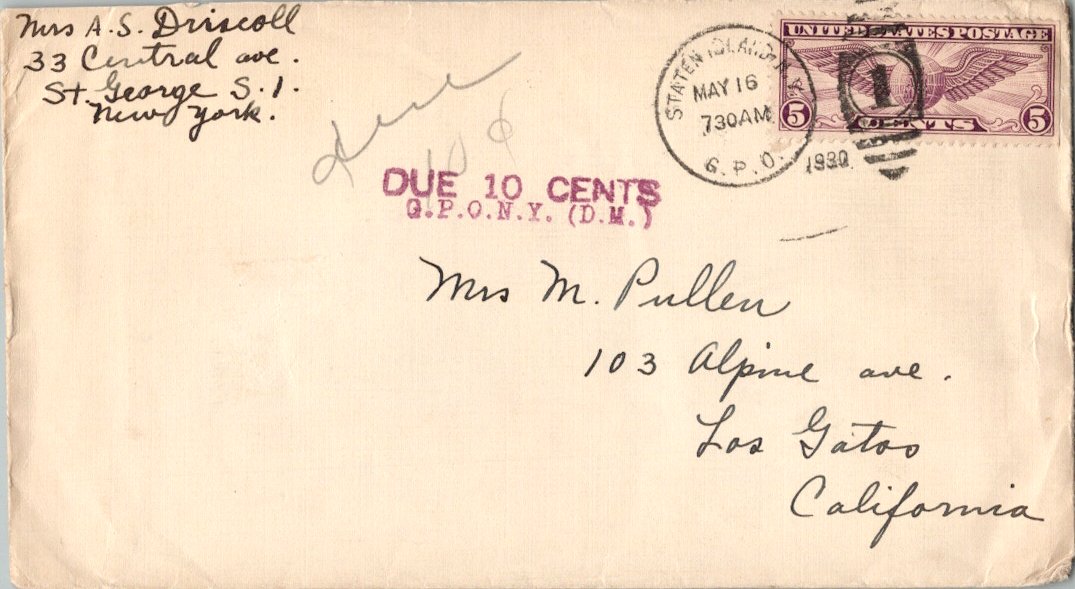 Mrs A. S. Driscoll
33 Central ave.
St. George S. I.
New York.
STATEN ISLAND
MAY 16
730AM
G. P. O.
1930
1
UNITED STATES POSTAGE
5 CENTS 5
Due
10 ¢
DUE 10 CENTS
G.P.O.N.Y. (D.M.)
Mrs M. Pullen
103 Alpine ave.
Los Gatos
California